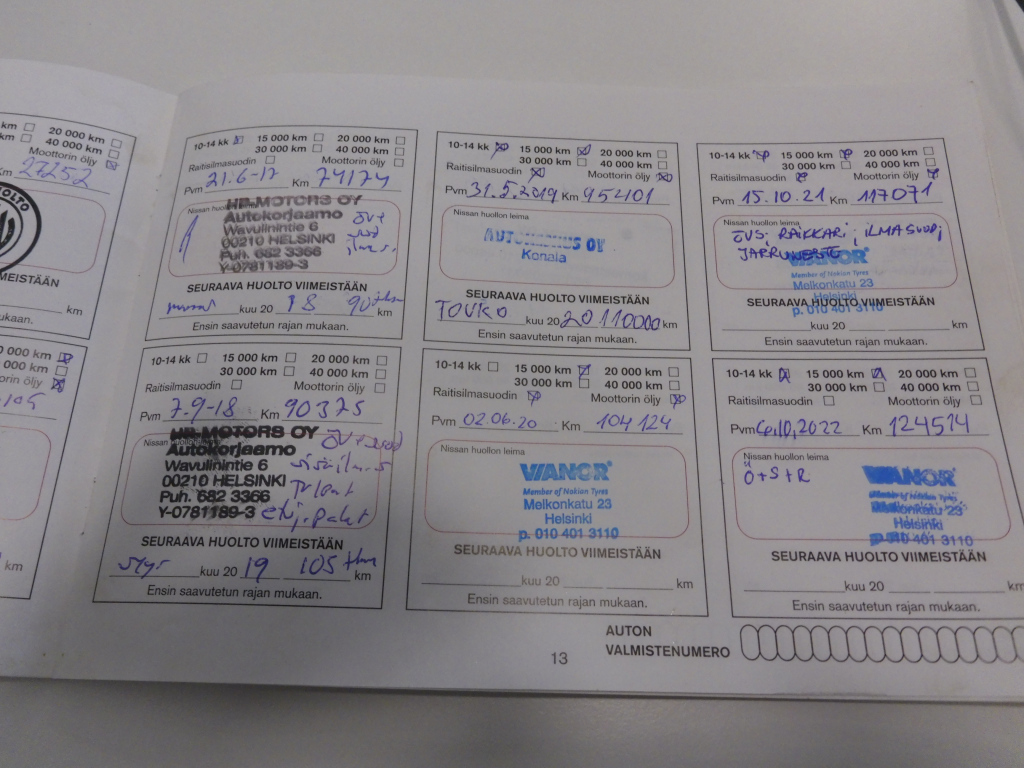 km 20 000 km
km 40 000 km
Moottorin öljy
Km 27252
HUOLTO
VIIMEISTÄÄN
km
mukaan.
10-14 kk 15 000 km 20 000 km
30 000 km 40 000 km
Raitisilmasuodin Moottorin öljy
Pvm 21.6-17 Km 74174
Nissan huollon leima
HB-MOTORS OY
Autokorjaamo
Wavulinintie 6
00210 HELSINKI
Puh. 682 3366
Y-0781189-3
SEURAAVA HUOLTO VIIMEISTÄÄN
kuu 20 18 90 km
Ensin saavutetun rajan mukaan.
10-14 kk 15 000 km 20 000 km
30 000 km 40 000 km
Raitisilmasuodin Moottorin öljy
Pvm 31.5.2019 Km 95401
Nissan huollon leima
OY
Konala
SEURAAVA HUOLTO VIIMEISTÄÄN
TOUKO kuu 20 20 110000 km
Ensin saavutetun rajan mukaan.
10-14 kk 15 000 km 20 000 km
30 000 km 40 000 km
Raitisilmasuodin Moottorin öljy
Pvm 15.10.21 Km 117071
Nissan huollon leima
ÖVS; RAIKKARI; ILMASUOD;
JARRUNESTE
VIANOR
Member of Nokian Tyres
Melkonkatu 23
Helsinki
p. 010 401 3110
SEURAAVA HUOLTO VIIMEISTÄÄN
kuu 20 km
Ensin saavutetun rajan mukaan.
0 000 km
000 km
torin öljy
km
10-14 kk 15 000 km 20 000 km
30 000 km 40 000 km
Raitisilmasuodin Moottorin öljy
Pvm 7.9-18 Km 90375
Nissan
HB-MOTORS OY
Autokorjaamo
Wavulinintie 6
00210 HELSINKI
Puh. 682 3366
Y-0781189-3
SEURAAVA HUOLTO VIIMEISTÄÄN
syys kuu 20 19 105 km
Ensin saavutetun rajan mukaan.
10-14 kk 15 000 km 20 000 km
30 000 km 40 000 km
Raitisilmasuodin Moottorin öljy
Pvm 02.06.20 Km 104 124
Nissan huollon leima
VIANOR
Member of Nokian Tyres
Melkonkatu 23
Helsinki
p. 010 401 3110
SEURAAVA HUOLTO VIIMEISTÄÄN
kuu 20 km
Ensin saavutetun rajan mukaan.
10-14 kk 15 000 km 20 000 km
30 000 km 40 000 km
Raitisilmasuodin Moottorin öljy
Pvm 6.10.2022 Km 124514
Nissan huollon leima
Ö+S+R
VIANOR
Member of Nokian Tyres
Melkonkatu 23
Helsinki
p. 010 401 3110
SEURAAVA HUOLTO VIIMEISTÄÄN
kuu 20 km
Ensin saavutetun rajan mukaan.
AUTON
VALMISTENUMERO
13